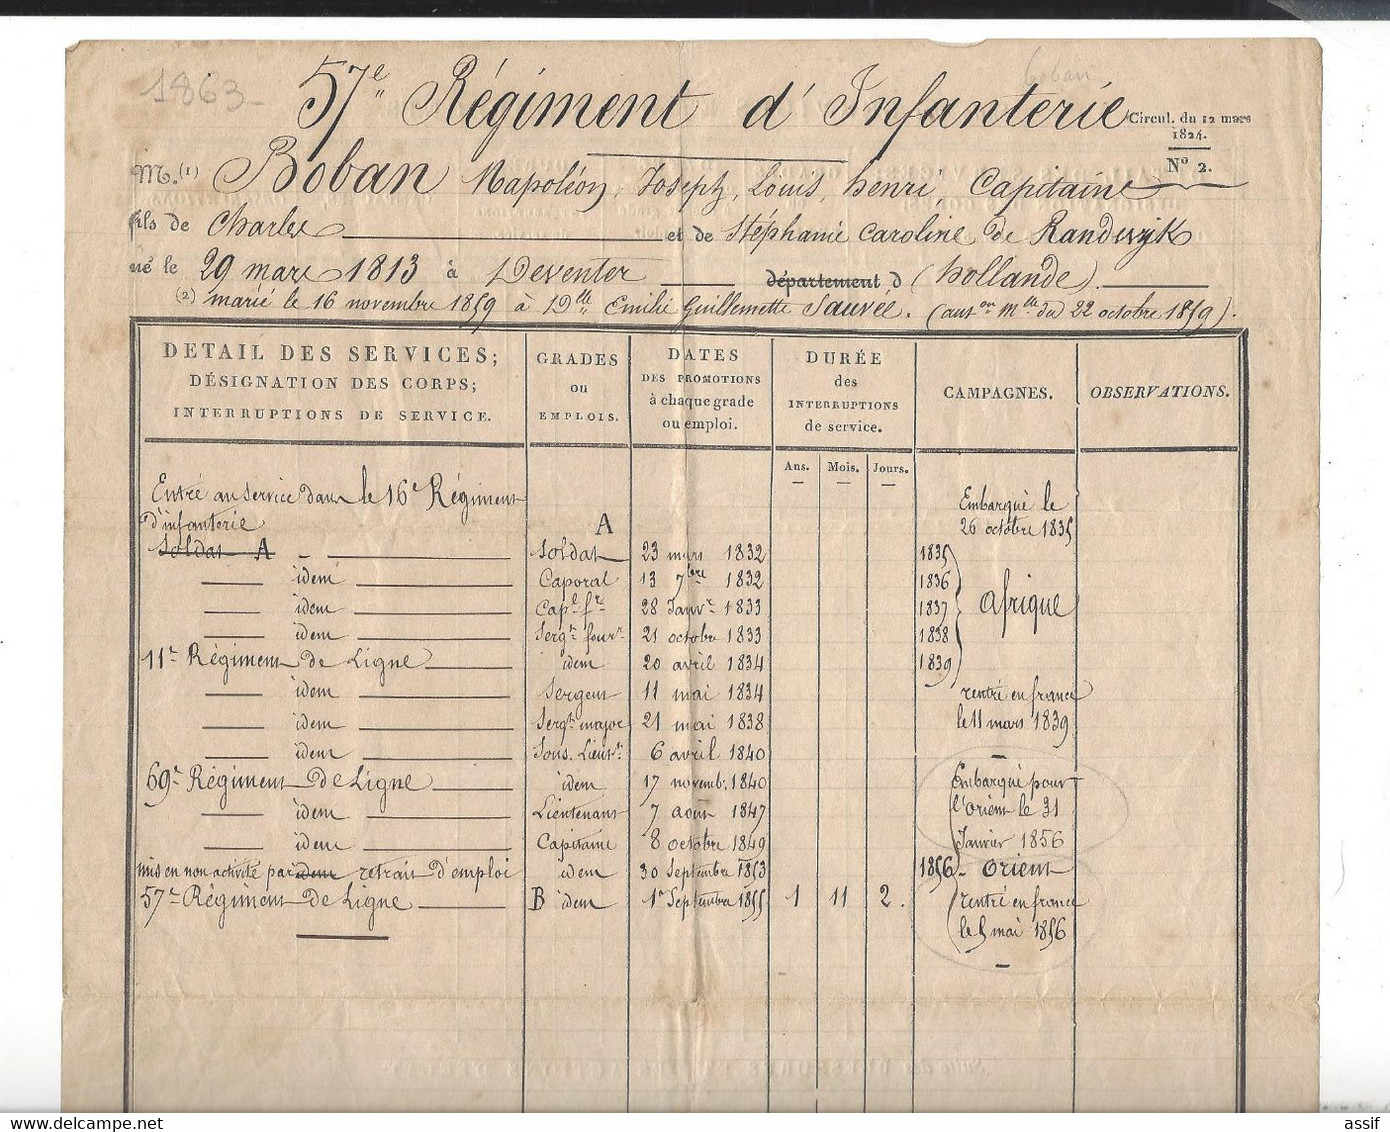 1863
boban
57e Régiment d'Infanterie
Circul. du 12 mars
1824.
N° 2.
M. (1) Boban Napoléon, Joseph, Louis, henri Capitaine
fils de Charles et de Stéphanie Caroline de Randwyk
né le 29 mars 1813 à Deventer département d (hollande).
(2) marié le 16 novembre 1859 à Dlle Emilie Guillemette Sauvée. (auton Mlle du 22 octobre 1859).
DETAIL DES SERVICES;
DÉSIGNATION DES CORPS;
INTERRUPTIONS DE SERVICE.
GRADES
ou
EMPLOIS.
DATES
DES PROMOTIONS
à chaque grade
ou emploi.
DURÉE
des
INTERRUPTIONS
de service.
CAMPAGNES.
OBSERVATIONS.
Ans. Mois. Jours.
Entré au service dans le 16e Régiment
d'infanterie A
Embarqué le
26 octobre 1835
Soldat A Soldat 23 mars 1832 1835
idem Caporal 13 7bre 1832 1836
idem Capl fr 28 Janvr 1833 1837 Afrique
idem Sergt fourr 21 octobre 1833 1838
11e Régiment de Ligne idem 20 avril 1834 1839
idem Sergent 11 mai 1834 rentré en france
idem Sergt major 21 mai 1838 le 11 mars 1839
idem Sous. Lieutt 6 avril 1840
69e Régiment de Ligne idem 17 novemb. 1840 Embarqué pour
idem Lieutenant 7 aout 1847 l'orient le 31
idem Capitaine 8 octobre 1849 Janvier 1856
mis en non activité par idem retrait d'emploi idem 30 Septembre 1853 1856 - orient
57e Régiment de Ligne B idem 1er Septembre 1855 1 11 2. rentré en france
le 5 mai 1856
assif